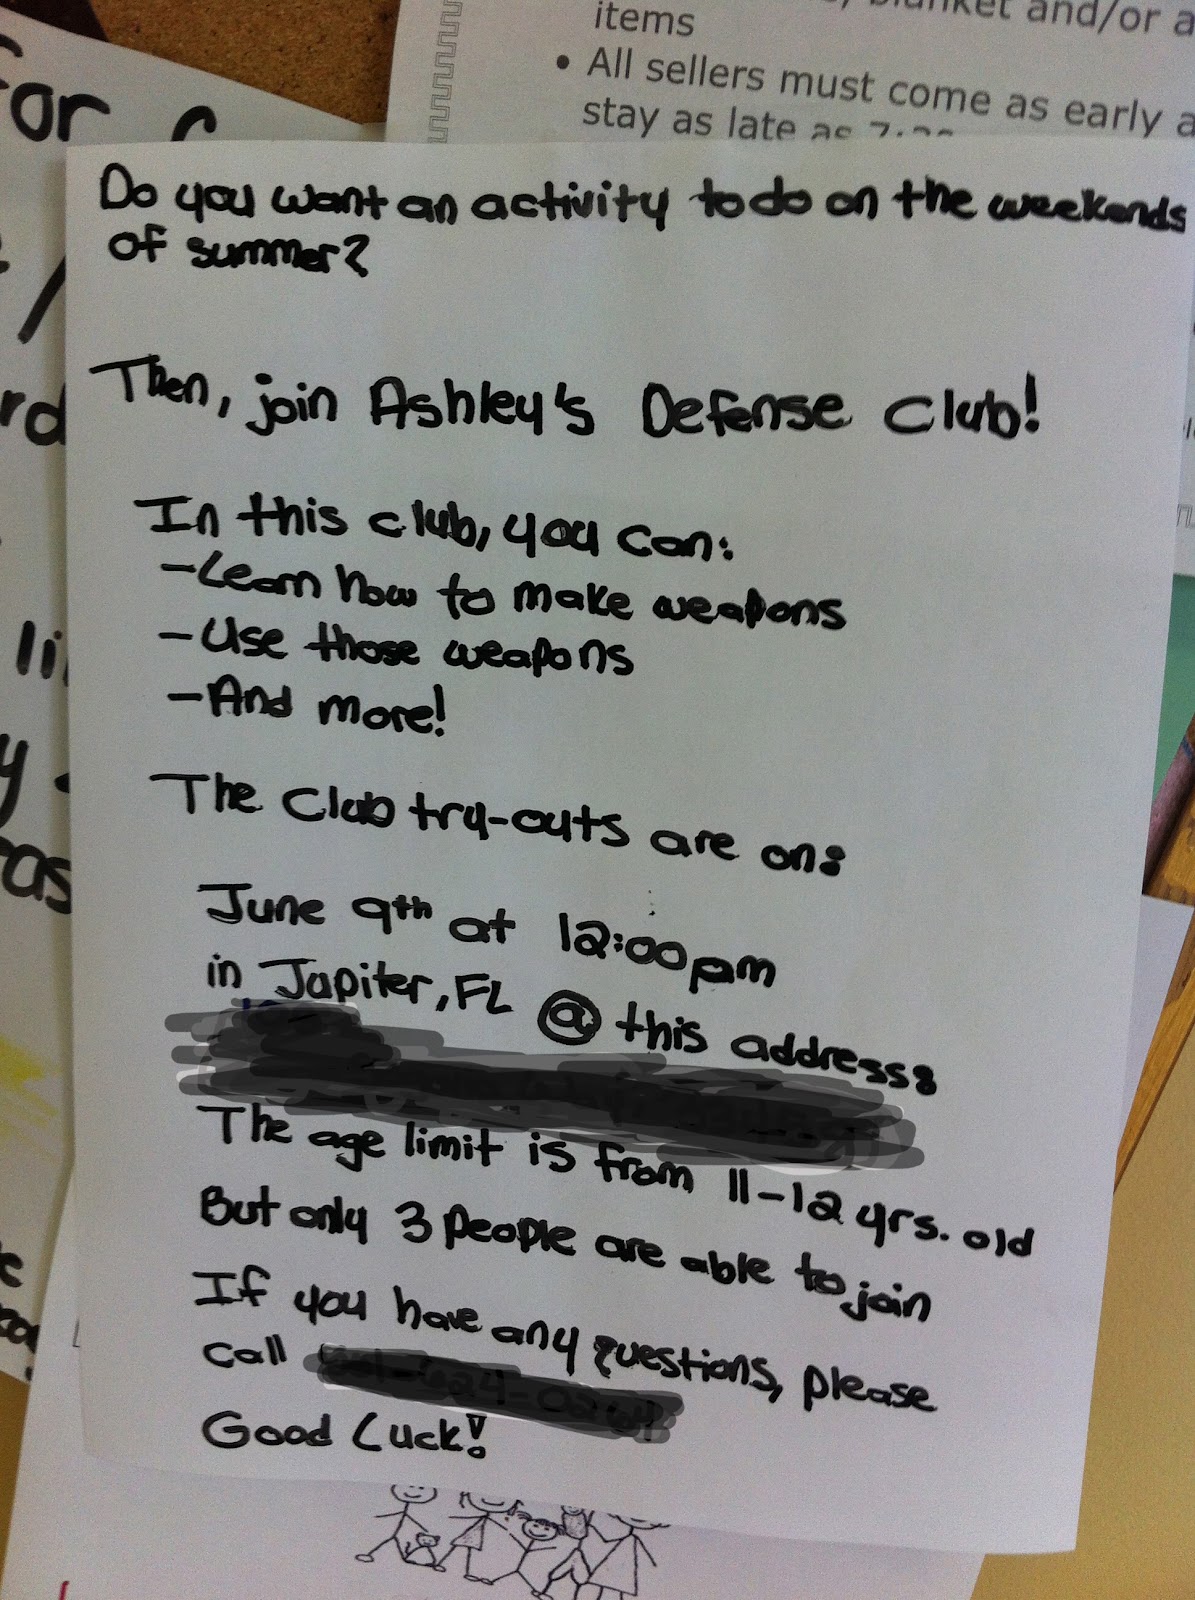 blanket and/or a
items
• All sellers must come as early a
stay as late as
for
Do you want an activity to do on the weekends
of summer?
Then, join Ashley's Defense Club!
In this club, you can:
-Learn how to make weapons
-Use those weapons
-And more!
The Club try-outs are on:
June 9th at 12:00pm
in Jupiter, FL @ this address:
The age limit is from 11-12 yrs. old
But only 3 people are able to join
If you have any questions, please
call
Good Luck!